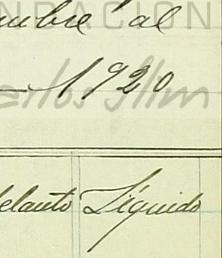 NDACION
mbre al
1920
Carlos Illm
elanto Líquido